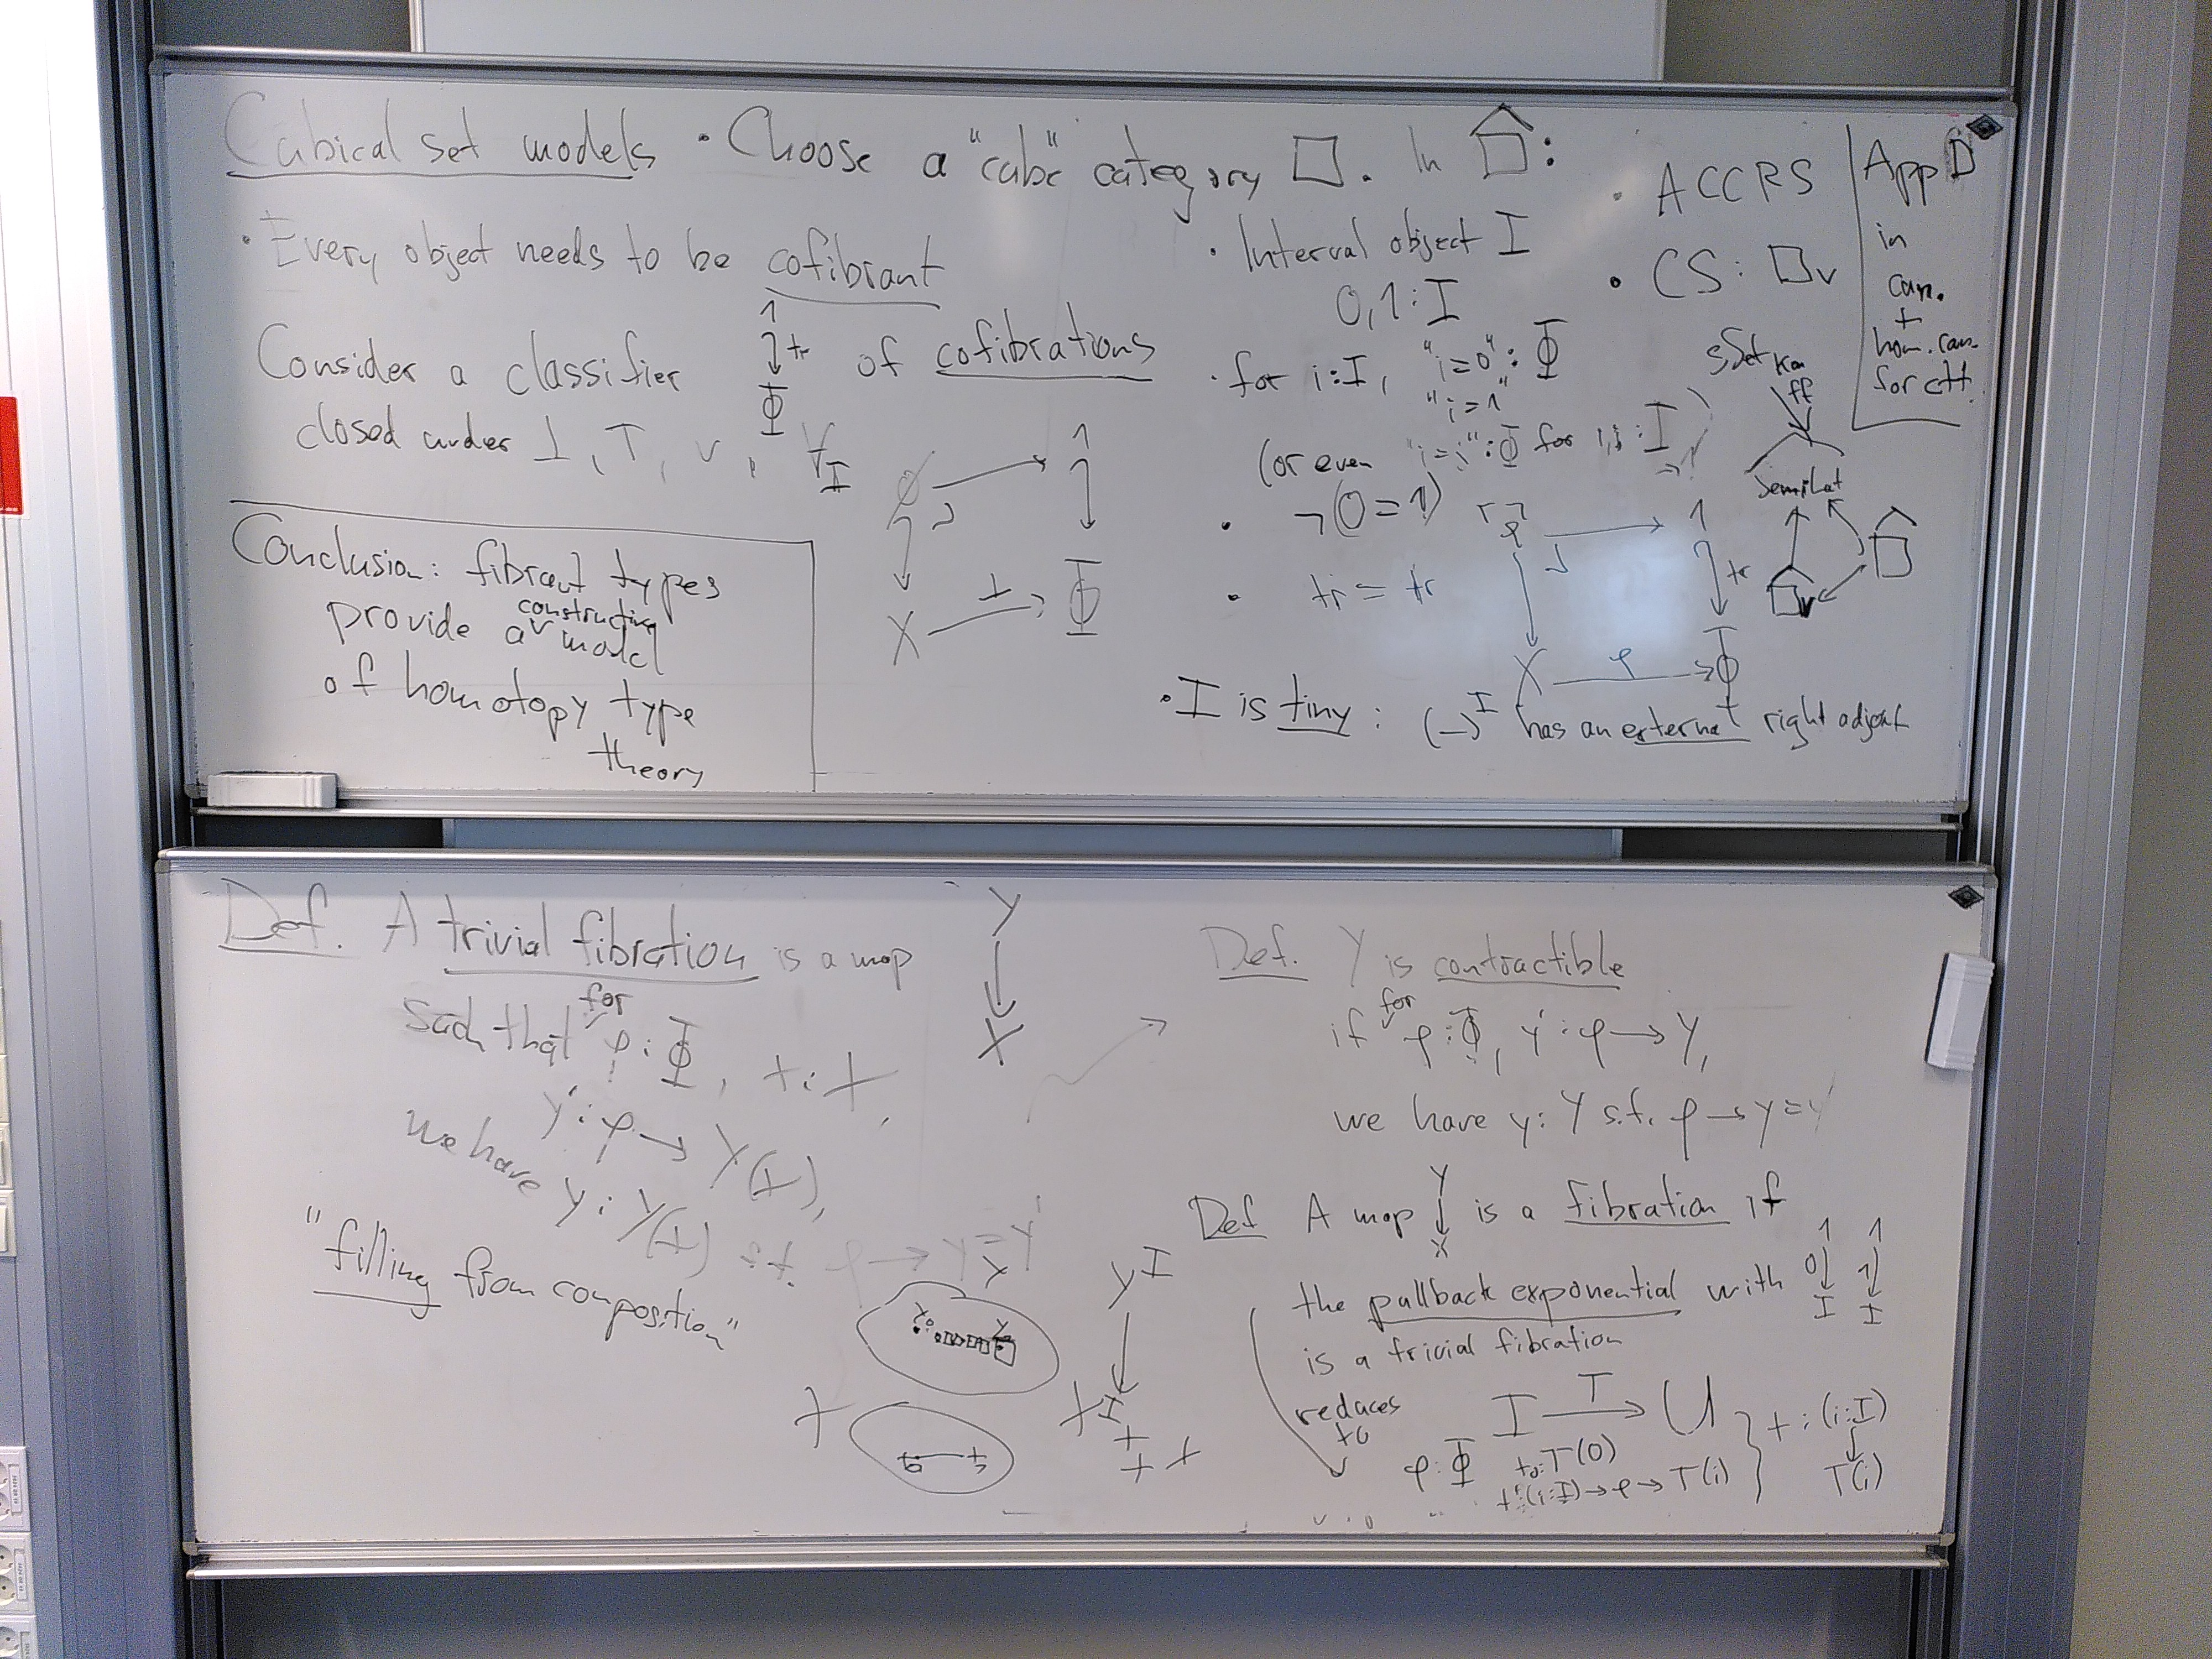 Cubical set models
• Choose a "cube" category □. In □̂:
• Every object needs to be cofibrant
Consider a classifier 1 ↪ Φ of cofibrations
tr
closed under ⊥, ⊤, ∨, ∀_I
∅ → 1
X → Φ
⊥
Conclusion: fibrant types
provide a constructive model
of homotopy type
theory
• Interval object I
0, 1 : I
• for i : I, "i = 0" : Φ
"i = 1"
(or even "i = j" : Φ for i, j : I)
• ¬(0 = 1)
• tr = tr
⌜φ⌝ → 1
tr
X → Φ
φ
• I is tiny : (–)^I has an external right adjoint
• ACCRS
• CS : □∨
sSet Kan
ff
SemiLat
App D
in
can.
+
hom. can.
for ctt.
Def. A trivial fibration is a map
Y
↓
X
such that for φ : Φ, x : X,
y' : φ → Y(x),
we have y : Y(x) s.t. φ → y = y'
"filling from composition"
Y
X
Y^I
↓
X^I
Def. Y is contractible
if for φ : Φ, y' : φ → Y,
we have y : Y s.t. φ → y = y'
Def A map Y ↓ X is a fibration if
the pullback exponential with
1 1
0↓ 1↓
I I
is a trivial fibration
reduces
to
I → U
T
φ : Φ t₀ : T(0)
t' : (i : I) → φ → T(i)
t : (i : I)
↓
T(i)